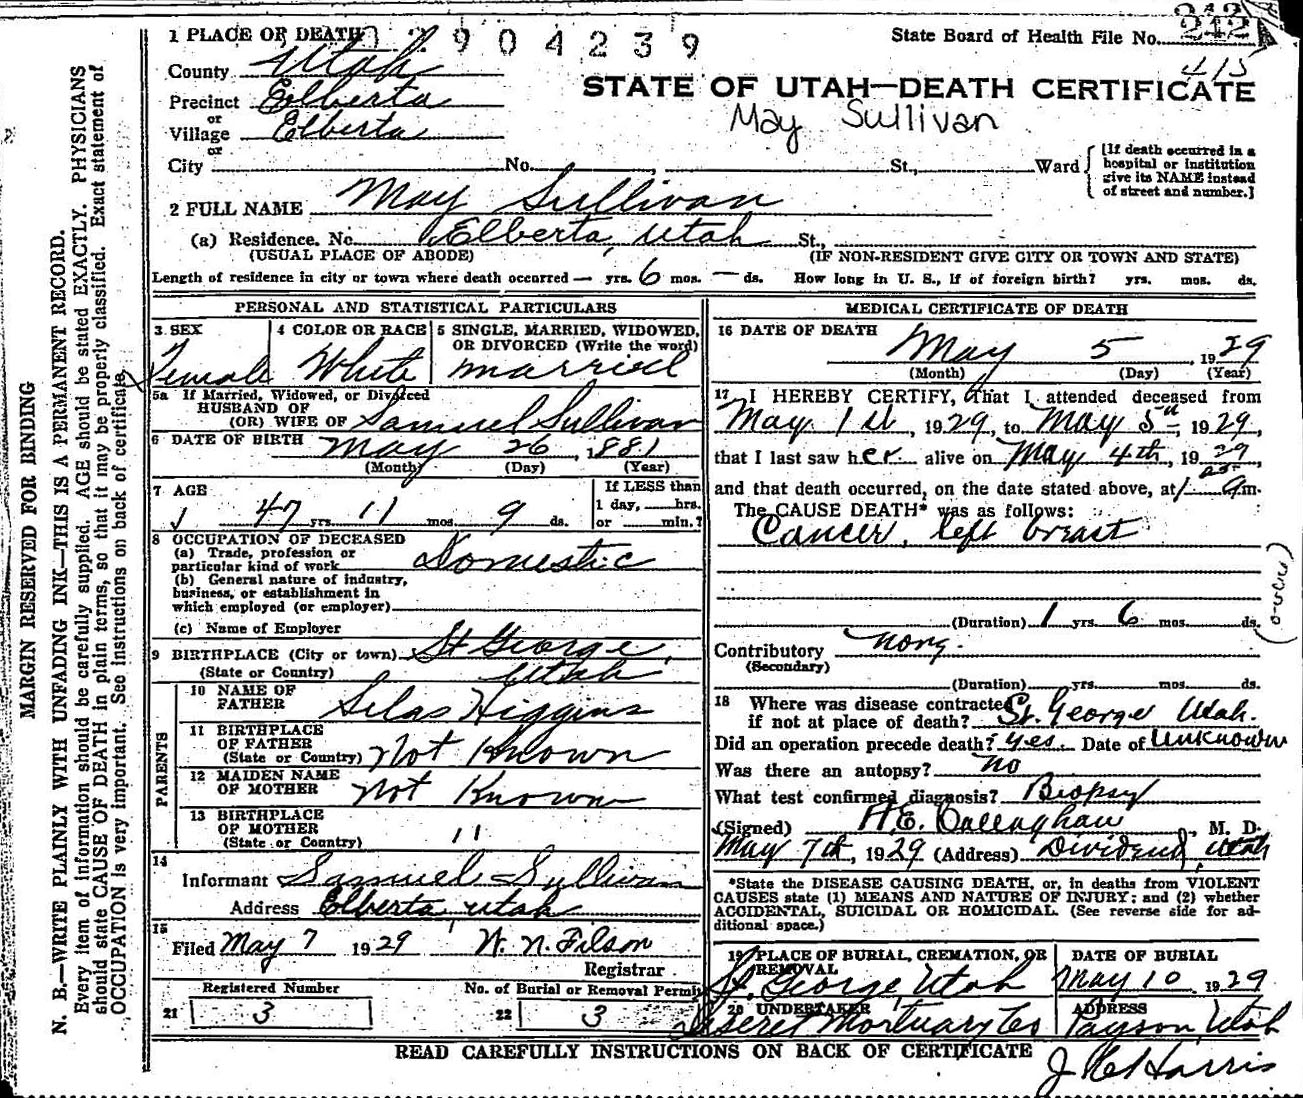 1 PLACE OF DEATH 2904239
State Board of Health File No. 242
415
County Utah
STATE OF UTAH—DEATH CERTIFICATE
Precinct Elberta
May Sullivan
or
Village Elberta
or
City No. St., Ward
[If death occurred in a hospital or institution give its NAME instead of street and number.]
2 FULL NAME May Sullivan
(a) Residence. No. Elberta, Utah St.,
(USUAL PLACE OF ABODE) (IF NON-RESIDENT GIVE CITY OR TOWN AND STATE)
Length of residence in city or town where death occurred — yrs. 6 mos. — ds. How long in U. S., if of foreign birth? yrs. mos. ds.
PERSONAL AND STATISTICAL PARTICULARS
3 SEX 4 COLOR OR RACE 5 SINGLE, MARRIED, WIDOWED,
OR DIVORCED (Write the word)
Female White married
5a If Married, Widowed, or Divorced
HUSBAND OF
(OR) WIFE OF Samuel Sullivan
6 DATE OF BIRTH May 26, 1881
(Month) (Day) (Year)
7 AGE If LESS than
1 day, hrs.
47 yrs. 11 mos. 9 ds. or min.?
8 OCCUPATION OF DECEASED
(a) Trade, profession or
particular kind of work Domestic
(b) General nature of industry,
business, or establishment in
which employed (or employer)
(c) Name of Employer
9 BIRTHPLACE (City or town) St George,
(State or Country) Utah
PARENTS
10 NAME OF
FATHER Silas Higgins
11 BIRTHPLACE
OF FATHER
(State or Country) Not Known
12 MAIDEN NAME
OF MOTHER Not Known
13 BIRTHPLACE
OF MOTHER
(State or Country) 11
14
Informant Samuel Sullivan
Address Elberta, Utah
15
Filed May 7 1929 W. N. Filson
Registrar
Registered Number No. of Burial or Removal Permit
21 3 22 3
MEDICAL CERTIFICATE OF DEATH
16 DATE OF DEATH
May 5, 1929
(Month) (Day) (Year)
17 I HEREBY CERTIFY, that I attended deceased from
May 1st, 1929, to May 5th, 1929,
that I last saw her alive on May 4th, 1929,
and that death occurred, on the date stated above, at m.
The CAUSE DEATH* was as follows:
Cancer, left breast
(Duration) 1 yrs. 6 mos. ds.
Contributory none.
(Secondary)
(Duration) yrs. mos. ds.
18 Where was disease contracted
if not at place of death? St. George Utah.
Did an operation precede death? yes. Date of Unknown
Was there an autopsy? no
What test confirmed diagnosis? Biopsy
(Signed) H.E. Callaghan, M. D.
May 7th, 1929 (Address) Dividend, Utah
*State the DISEASE CAUSING DEATH, or, in deaths from VIOLENT
CAUSES state (1) MEANS AND NATURE OF INJURY; and (2) whether
ACCIDENTAL, SUICIDAL OR HOMICIDAL. (See reverse side for ad-
ditional space.)
19 PLACE OF BURIAL, CREMATION, OR
REMOVAL
St. George, Utah
DATE OF BURIAL
May 10, 1929
20 UNDERTAKER
Deseret Mortuary Co
ADDRESS
Payson, Utah
READ CAREFULLY INSTRUCTIONS ON BACK OF CERTIFICATE
MARGIN RESERVED FOR BINDING
N. B.—WRITE PLAINLY WITH UNFADING INK—THIS IS A PERMANENT RECORD.
Every item of information should be carefully supplied. AGE should be stated EXACTLY. PHYSICIANS
should state CAUSE OF DEATH in plain terms, so that it may be properly classified. Exact statement of
OCCUPATION is very important. See instructions on back of certificate.